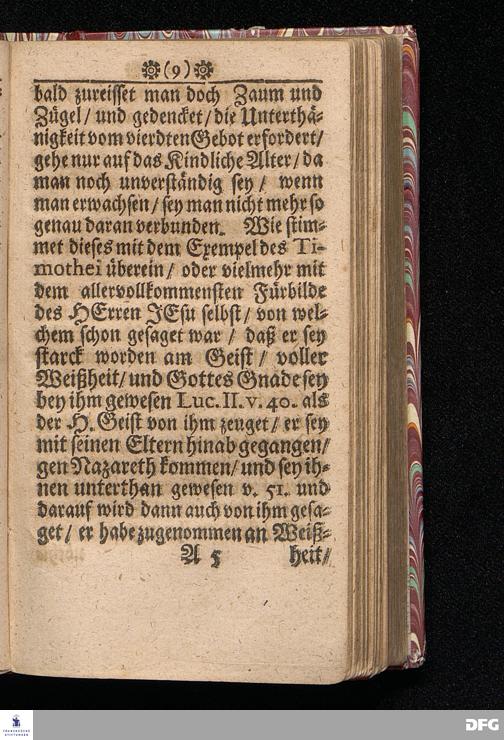 (9)
bald zureisset man doch Zaum und
Zügel/ und gedencket/ die Unterthä-
nigkeit vom vierdten Gebot erfordert/
gehe nur auf das Kindliche Alter/ da
man noch unverständig sey/ wenn
man erwachsen/ sey man nicht mehr so
genau daran verbunden. Wie stim-
met dieses mit dem Exempel des Ti-
mothei überein/ oder vielmehr mit
dem allervollkommensten Fürbilde
des HErren JEsu selbst/ von wel-
chem schon gesaget war/ daß er sey
starck worden am Geist/ voller
Weißheit/ und Gottes Gnade sey
bey ihm gewesen Luc. II. v. 40. als
der H. Geist von ihm zeuget/ er sey
mit seinen Eltern hinab gegangen/
gen Nazareth kommen/ und sey ih-
nen unterthan gewesen v. 51. und
darauf wird dann auch von ihm gesa-
get/ er habe zugenommen an Weiß-
A 5 heit/
FRANCKESCHE
STIFTUNGEN
DFG